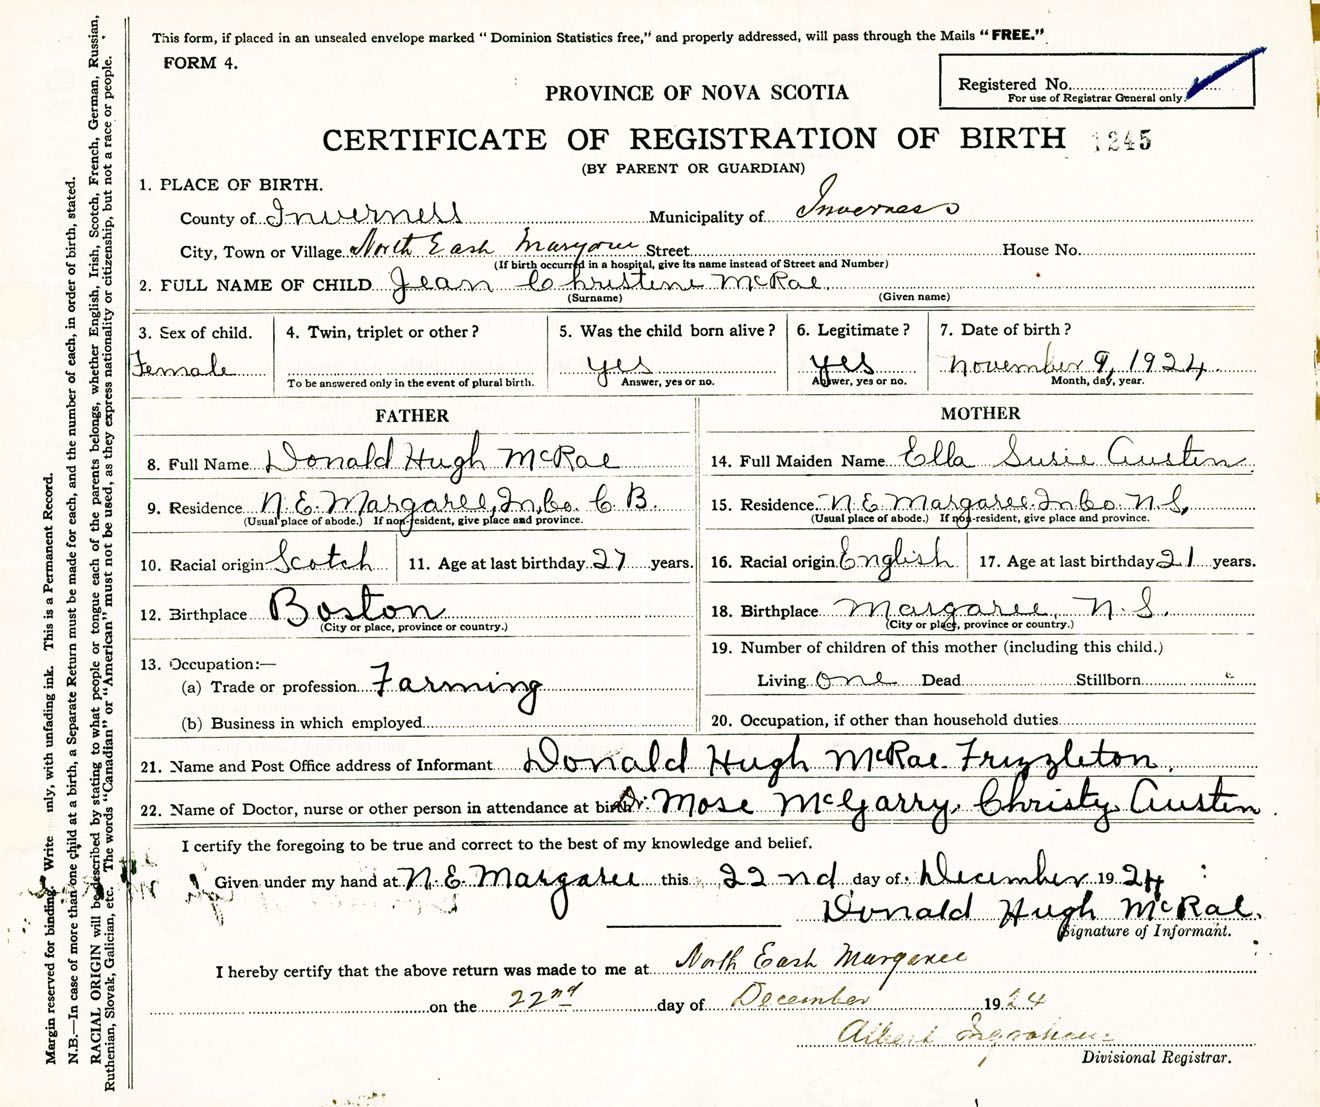 This form, if placed in an unsealed envelope marked "Dominion Statistics free," and properly addressed, will pass through the Mails "FREE."
FORM 4.
Registered No.
For use of Registrar General only.
PROVINCE OF NOVA SCOTIA
CERTIFICATE OF REGISTRATION OF BIRTH 1245
(BY PARENT OR GUARDIAN)
1. PLACE OF BIRTH.
County of Inverness Municipality of Inverness
City, Town or Village North East Margaree Street House No.
(If birth occurred in a hospital, give its name instead of Street and Number)
2. FULL NAME OF CHILD Jean Christene McRae
(Surname) (Given name)
3. Sex of child. 4. Twin, triplet or other? 5. Was the child born alive? 6. Legitimate? 7. Date of birth?
Female yes yes November 9, 1924
To be answered only in the event of plural birth. Answer, yes or no. Answer, yes or no. Month, day, year.
FATHER
8. Full Name Donald Hugh McRae
9. Residence N. E. Margaree, In. Co. C B.
(Usual place of abode.) If non-resident, give place and province.
10. Racial origin Scotch 11. Age at last birthday 27 years.
12. Birthplace Boston
(City or place, province or country.)
13. Occupation:—
(a) Trade or profession Farming
(b) Business in which employed
MOTHER
14. Full Maiden Name Ella Susie Austen
15. Residence N E Margaree In Co N S,
(Usual place of abode.) If non-resident, give place and province.
16. Racial origin English 17. Age at last birthday 21 years.
18. Birthplace Margaree N. S.
(City or place, province or country.)
19. Number of children of this mother (including this child.)
Living one Dead Stillborn
20. Occupation, if other than household duties
21. Name and Post Office address of Informant Donald Hugh McRae Frizzleton.
22. Name of Doctor, nurse or other person in attendance at birth Dr. Mose McGarry. Christy Austen
I certify the foregoing to be true and correct to the best of my knowledge and belief.
Given under my hand at N. E. Margaree this 22nd day of December 1924
Donald Hugh McRae.
Signature of Informant.
I hereby certify that the above return was made to me at North East Margaree
on the 22nd day of December 1924
Albert Ingraham
Divisional Registrar.
Margin reserved for binding. Write only, with unfading ink. This is a Permanent Record.
N.B.—In case of more than one child at a birth, a Separate Return must be made for each, and the number of each, in order of birth, stated.
RACIAL ORIGIN will be described by stating to what people or tongue each of the parents belongs, whether English, Irish, Scotch, French, German, Russian,
Ruthenian, Slovak, Galician, etc. The words "Canadian" or "American" must not be used, as they express nationality or citizenship, but not a race or people.